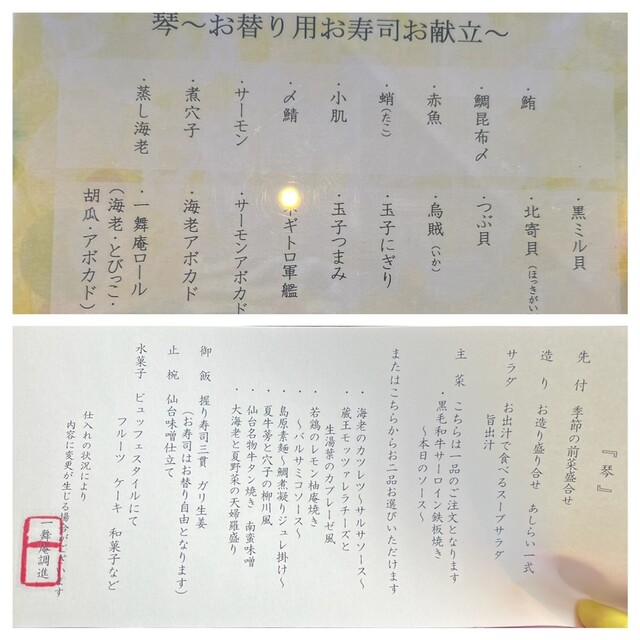 琴～お替り用お寿司お献立～
・鮪
・鯛昆布〆
・赤魚
・蛸(たこ)
・小肌
・〆鯖
・サーモン
・煮穴子
・蒸し海老
・黒ミル貝
・北寄貝(ほっきがい
・つぶ貝
・烏賊(いか)
・玉子にぎり
・玉子つまみ
ネギトロ軍艦
・サーモンアボカド
・海老アボカド
・一舞庵ロール
(海老・とびっこ・
胡瓜・アボカド)
『琴』
先付 季節の前菜盛合せ
造り お造り盛り合せ あしらい一式
サラダ お出汁で食べるスープサラダ
旨出汁
主菜 こちらは一品のご注文となります
・黒毛和牛サーロイン鉄板焼き
～本日のソース～
またはこちらからお二品お選びいただけます
・海老のカツレツ～サルサソース～
・蔵王モッツァレラチーズと
生湯葉のカプレーゼ風
・若鶏のレモン柚庵焼き
～バルサミコソース～
・島原素麺～鯛煮凝りジュレ掛け～
・夏牛蒡と穴子の柳川風
・仙台名物牛タン焼き 南蛮味噌
・大海老と夏野菜の天婦羅盛り
御飯 握り寿司三貫 ガリ生姜
(お寿司はお替り自由となります)
止椀 仙台味噌仕立て
水菓子 ビュッフェスタイルにて
フルーツ ケーキ 和菓子など
仕入れの状況により
内容に変更が生じる場合がございます
一舞庵調進